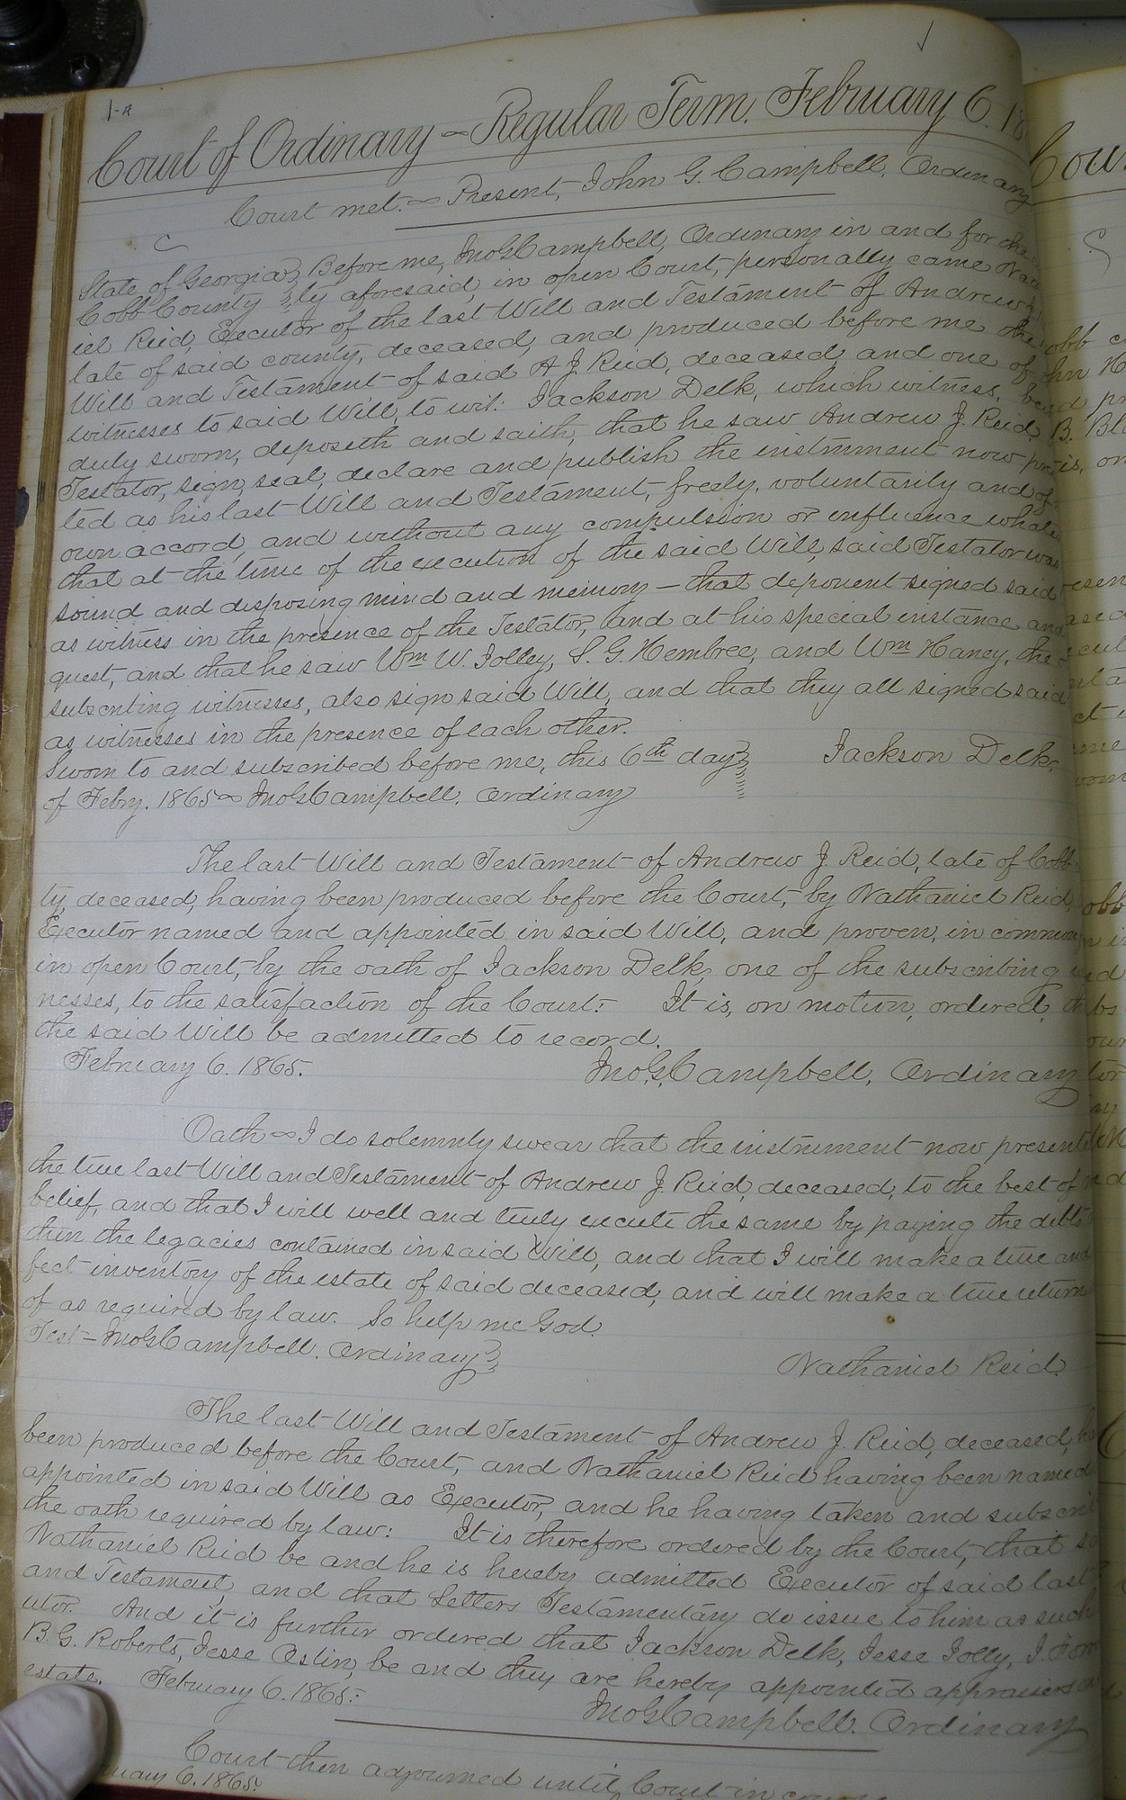 1-A
Court of Ordinary - Regular Term. February 6. 18
Court met. - Present, John G. Campbell, Ordinary
State of Georgia, } Before me, Jno G. Campbell, Ordinary in and for the
Cobb County } ty aforesaid, in open Court, personally came Nath
iel Reid, Executor of the last Will and Testament of Andrew J.
late of said county, deceased, and produced before me the
Will and Testament of said A J. Reid, deceased, and one of
witnesses to said Will, to wit: Jackson Delk, which witness, being
duly sworn, deposeth and saith, that he saw Andrew J. Reid,
Testator, sign, seal, declare and publish the instrument now pre
ted as his last Will and Testament, freely, voluntarily and of
own accord, and without any compulsion or influence what
that at the time of the execution of the said Will, said Testator was
sound and disposing mind and memory - that deponent signed said
as witness in the presence of the Testator, and at his special instance and
quest, and that he saw Wm W. Jolley, S. G. Hembree, and Wm Haney, the
subscribing witnesses, also sign said Will, and that they all signed said
as witnesses in the presence of each other.
Sworn to and subscribed before me, this 6th day } Jackson Delk.
of Febry. 1865 - Jno G. Campbell. Ordinary
The last Will and Testament of Andrew J. Reid, late of Cobb
ty, deceased, having been produced before the Court, by Nathaniel Reid,
Executor named and appointed in said Will, and proven, in common
in open Court, by the oath of Jackson Delk, one of the subscribing
nesses, to the satisfaction of the Court: It is, on motion, ordered, th
the said Will be admitted to record.
February 6. 1865. Jno. G. Campbell, Ordinary
Oath - I do solemnly swear that the instrument now present
the true last Will and Testament of Andrew J. Reid, deceased, to the best of
belief, and that I will well and truly execute the same by paying the debts
then the legacies contained in said Will, and that I will make a true and
fect inventory of the estate of said deceased, and will make a true return
of as required by law. So help me God.
Test - Jno G. Campbell. Ordinary } Nathaniel Reid.
The last Will and Testament of Andrew J. Reid, deceased, ha
been produced before the Court, and Nathaniel Reid having been named
appointed in said Will as Executor, and he having taken and subscri
the oath required by law: It is therefore ordered by the Court, that
Nathaniel Reid be and he is hereby admitted Executor of said last
and Testament, and that Letters Testamentary do issue to him as such
utor. And it is further ordered that Jackson Delk, Jesse Jolly, J.
B. G. Roberts, Jesse Oslin, be and they are hereby appointed appraisers
estate. February 6. 1865. Jno G. Campbell. Ordinary
Court then adjourned until Court in
uary 6. 1865.